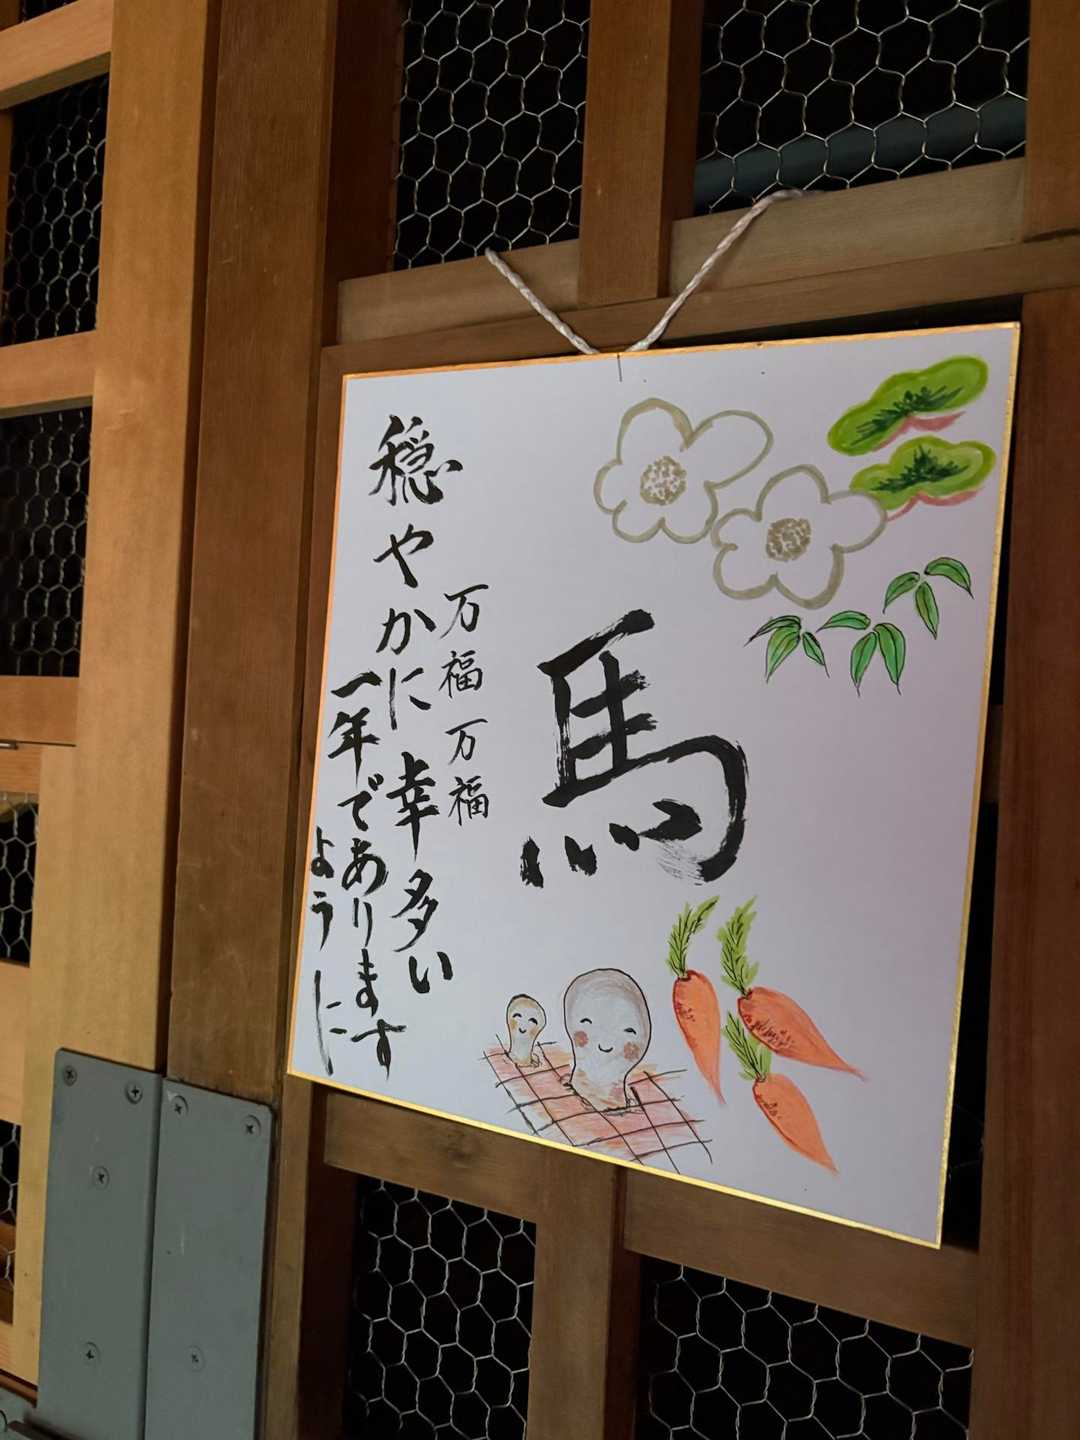 馬
万福万福
穏やかに幸多い
一年であります
ように